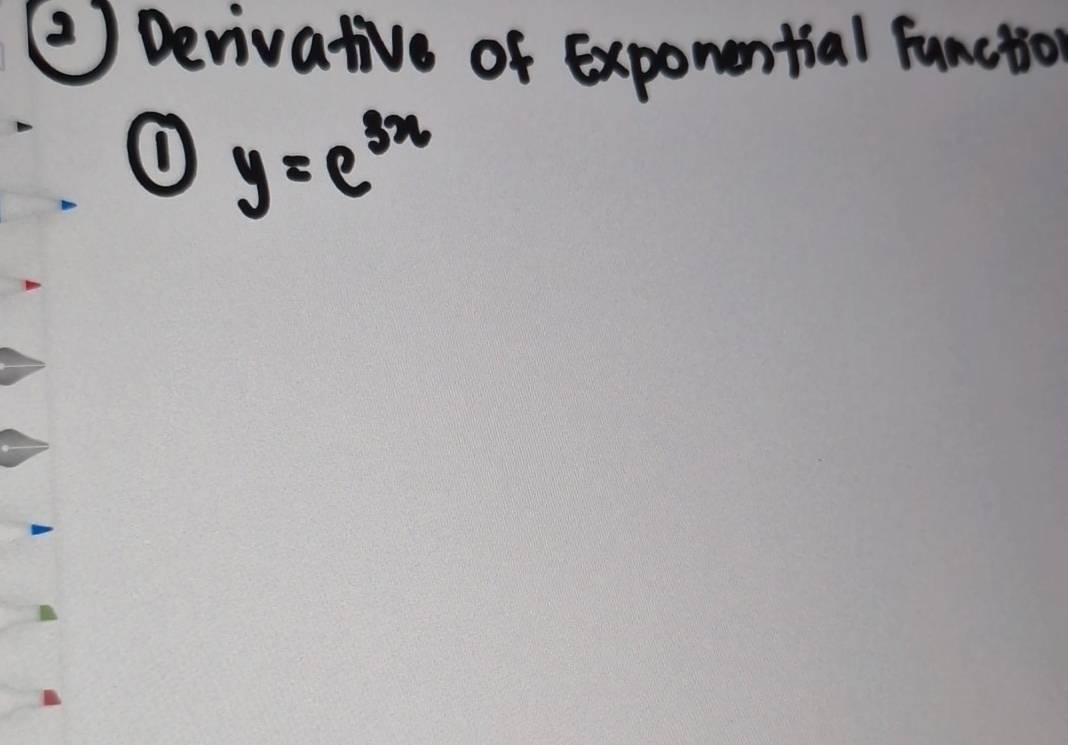 ② Derivative of Exponential Function
① y = e³ˣ